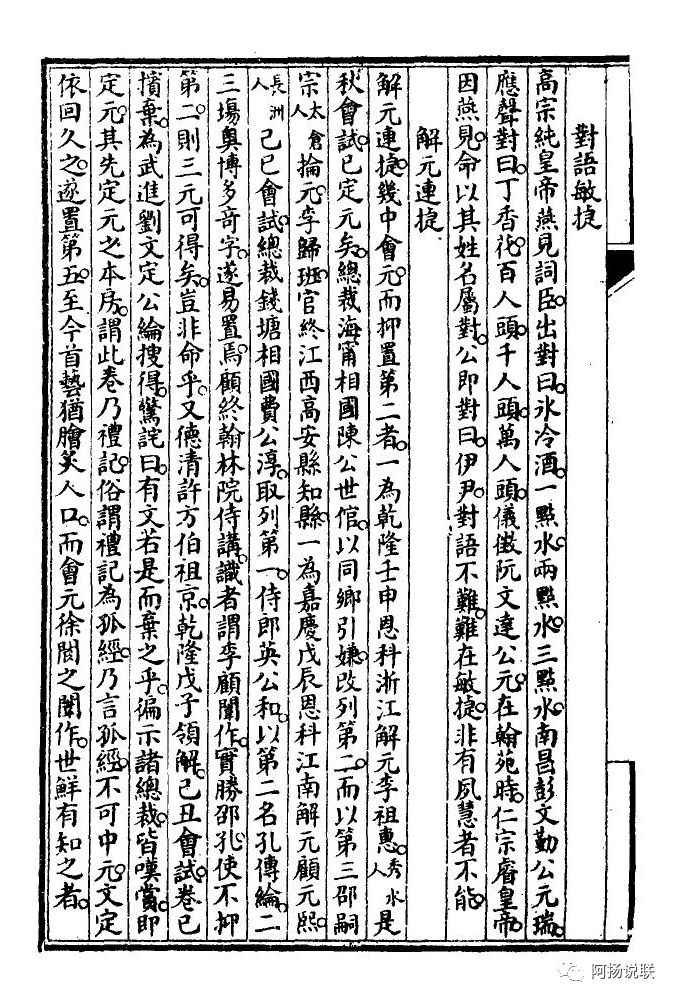 對語敏捷
高宗純皇帝燕見詞臣。出對曰。氷冷酒。一點水。兩點水。三點水。南昌彭文勤公元瑞。
應聲對曰。丁香花。百人頭。千人頭。萬人頭。儀徵阮文達公元。在翰苑時。仁宗睿皇帝。
因燕見。命以其姓名屬對。公即對曰。伊尹。對語不難。難在敏捷。非有夙慧者不能。
解元連捷
解元連捷。幾中會元。而抑置第二者。一為乾隆壬申恩科浙江解元李祖惠。秀水人是
秋會試。已定元矣。總裁海甯相國陳公世倌。以同鄉引嫌。改列第二。而以第三邵嗣
宗太倉人掄元。李歸班。官終江西高安縣知縣。一為嘉慶戊辰恩科江南解元顧元熙。
長洲人己巳會試。總裁錢塘相國費公淳。取列第一。侍郎英公和。以第二名孔傳綸。二
三場奧博多奇字。遂易置焉。顧終翰林院侍講。識者謂李顧闈作。實勝邵孔。使不抑
第二。則三元可得矣。豈非命乎。又德清許方伯祖京。乾隆戊子領解。己丑會試。卷已
擯棄。為武進劉文定公綸搜得。驚詫曰。有文若是而棄之乎。徧示諸總裁。皆嘆賞。即
定元。其先定元之本房。謂此卷乃禮記。俗謂禮記為孤經。乃言孤經不可中元。文定
依回久之。遂置第五。至今首藝猶膾炙人口。而會元徐閬之闈作。世鮮有知之者。
阿扬说联